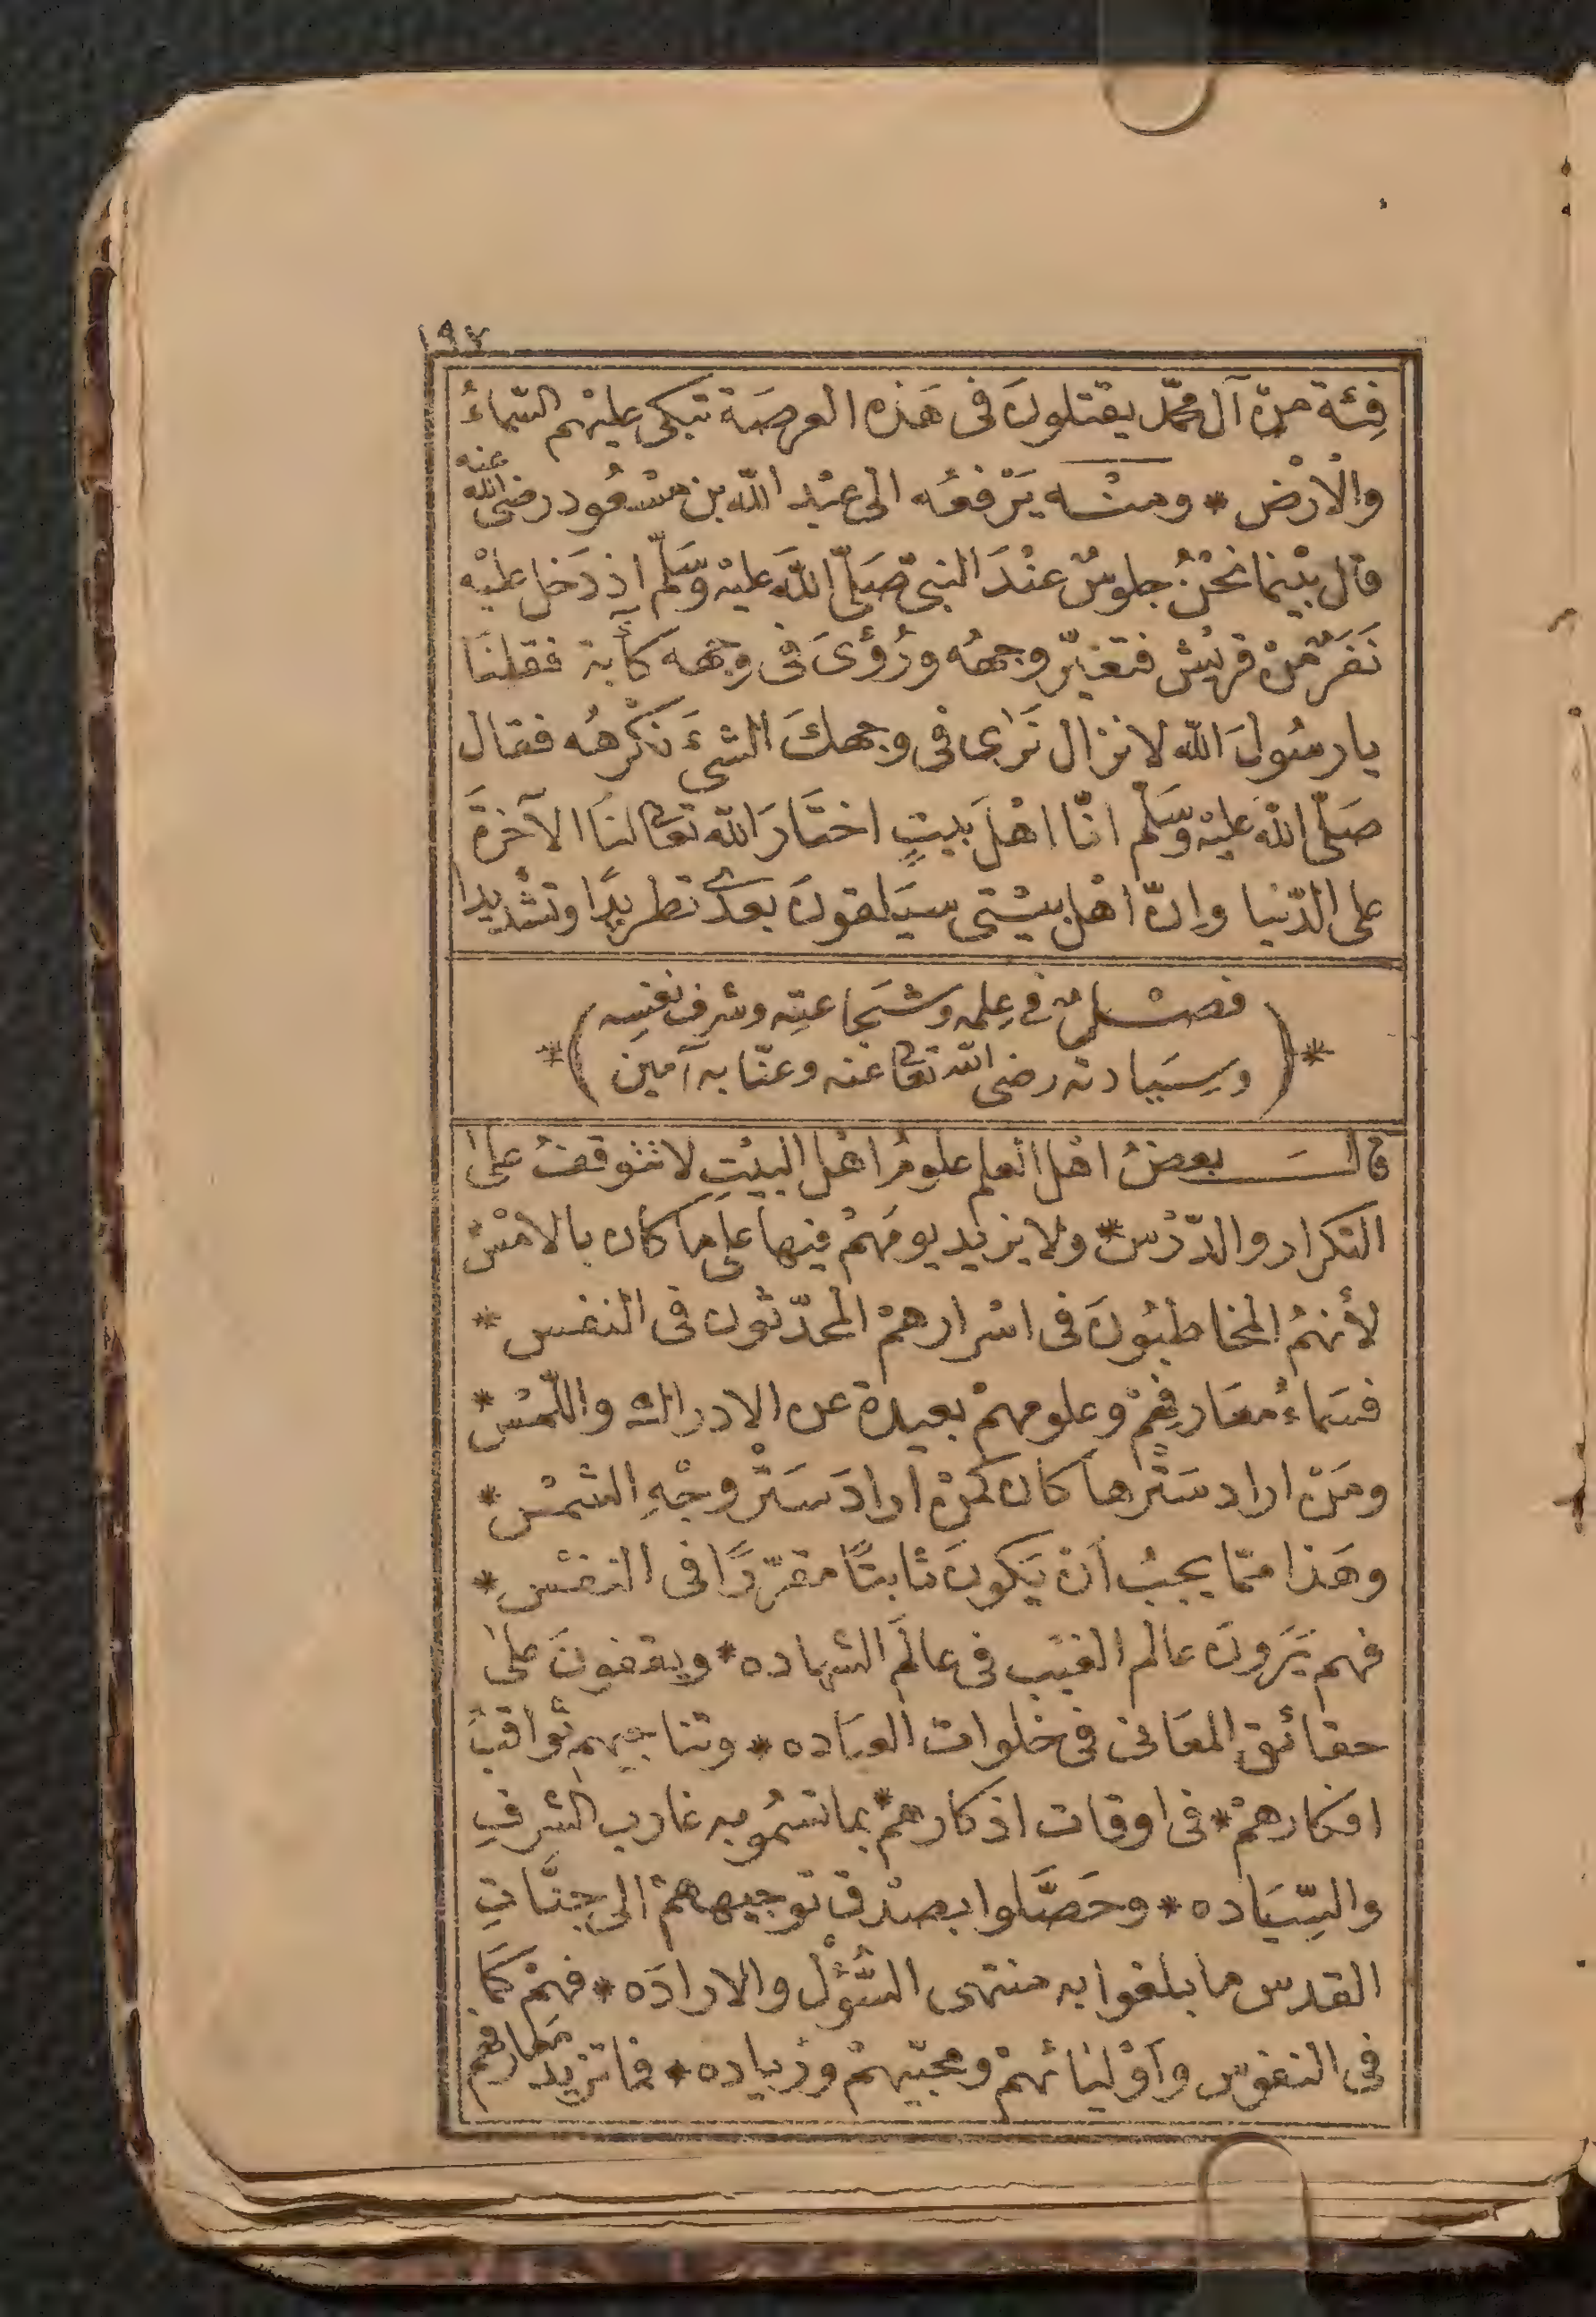 ١٩٧
فِئة منْ آل محمّد يقتلونَ فى هَذه العرصَة تبكى عليهْم السّماءُ
والْارْض * ومنْه يَرْفعُه الى عبْد اللّه بن مسْعُود رضى الله عنه
قال بيْنما نحْنُ جلوسٌ عنْدَ النبىّ صَلّى اللّهَ عليْه وسَلّم اذ دَخل عليْه
نَفَرٌ منْ قريْش فتغيّر وجههُ ورُؤىَ فى وجهه كآبة فقلنَا
يا رسُولَ اللّه لا نزال نَرَى فى وجهكَ الشىَٔ نكْرهُه فقال
صَلّى اللّه عليْه وسَلّم انّا اهْلَ بيتٍ اختَارَ اللّه تعالى لنَا الآخرَةَ
على الدّنيا وإنّ اهْل بيْتى سيَلقونَ بعدى تطريدًا وتشْديدا
* ( فصْلٌ فى عِلمه وشَجاعتِه وشرف نفسِه
وسِيَادته رضى اللّه تعالى عنه وعنّا به آمين ) *
قالَ بعضُ اهْل العلم علومُ اهْل البيْتِ لا تتوقفُ علىٰ
التكرار والدّرْس * ولا يزيد يومَهمْ فيها على مَا كان بالامْسْ
لأنهمُ المخاطبُونَ فى اسْرارهمْ المحدّثون فى النفس *
فسَماءُ معَارفِهمْ وعلومهمْ بعيدة عن الادراك واللّمْس *
ومَنْ اراد سَتْرها كان كمنْ ارادَ سَتْر وجْهِ الشمْس *
وهَذا ممّا يجبُ أنْ يَكونَ ثابتًا مقرّرًا فى النفْسِ *
فهم يَرَونَ عالم الغيْب فى عالَم الشهاده * ويقفونَ علىٰ
حقائق المعَانى فى خلوات العبَاده * وتناجيهم ثواقبُ
افكارهمْ * فى اوقات اذكارهمْ * بما تسمُو به غارب الشرفِ
والسّيَاده * وحَصَّلوا بصدْق توجيههمْ الى جنَّاتِ
القدس ما بلغوا به منتهى السُّؤْل والارادَه * فهمْ كمَا
فى النفوس وأوْليائهمْ ومحبّيهمْ وزياده * فما تزيد مَعارفهم